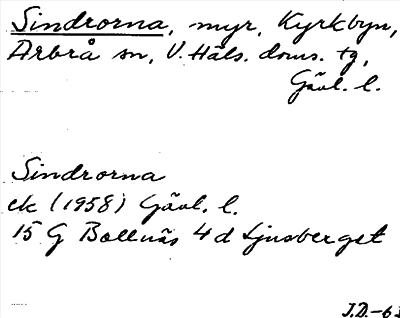 Sindrorna, myr, Kyrkbyn,
Arbrå sn, V. Häls. doms. tg,
Gävl. l.
Sindrorna
ek (1958) Gävl. l.
15 G Bollnäs 4 d Ljusberget
J.D.-63